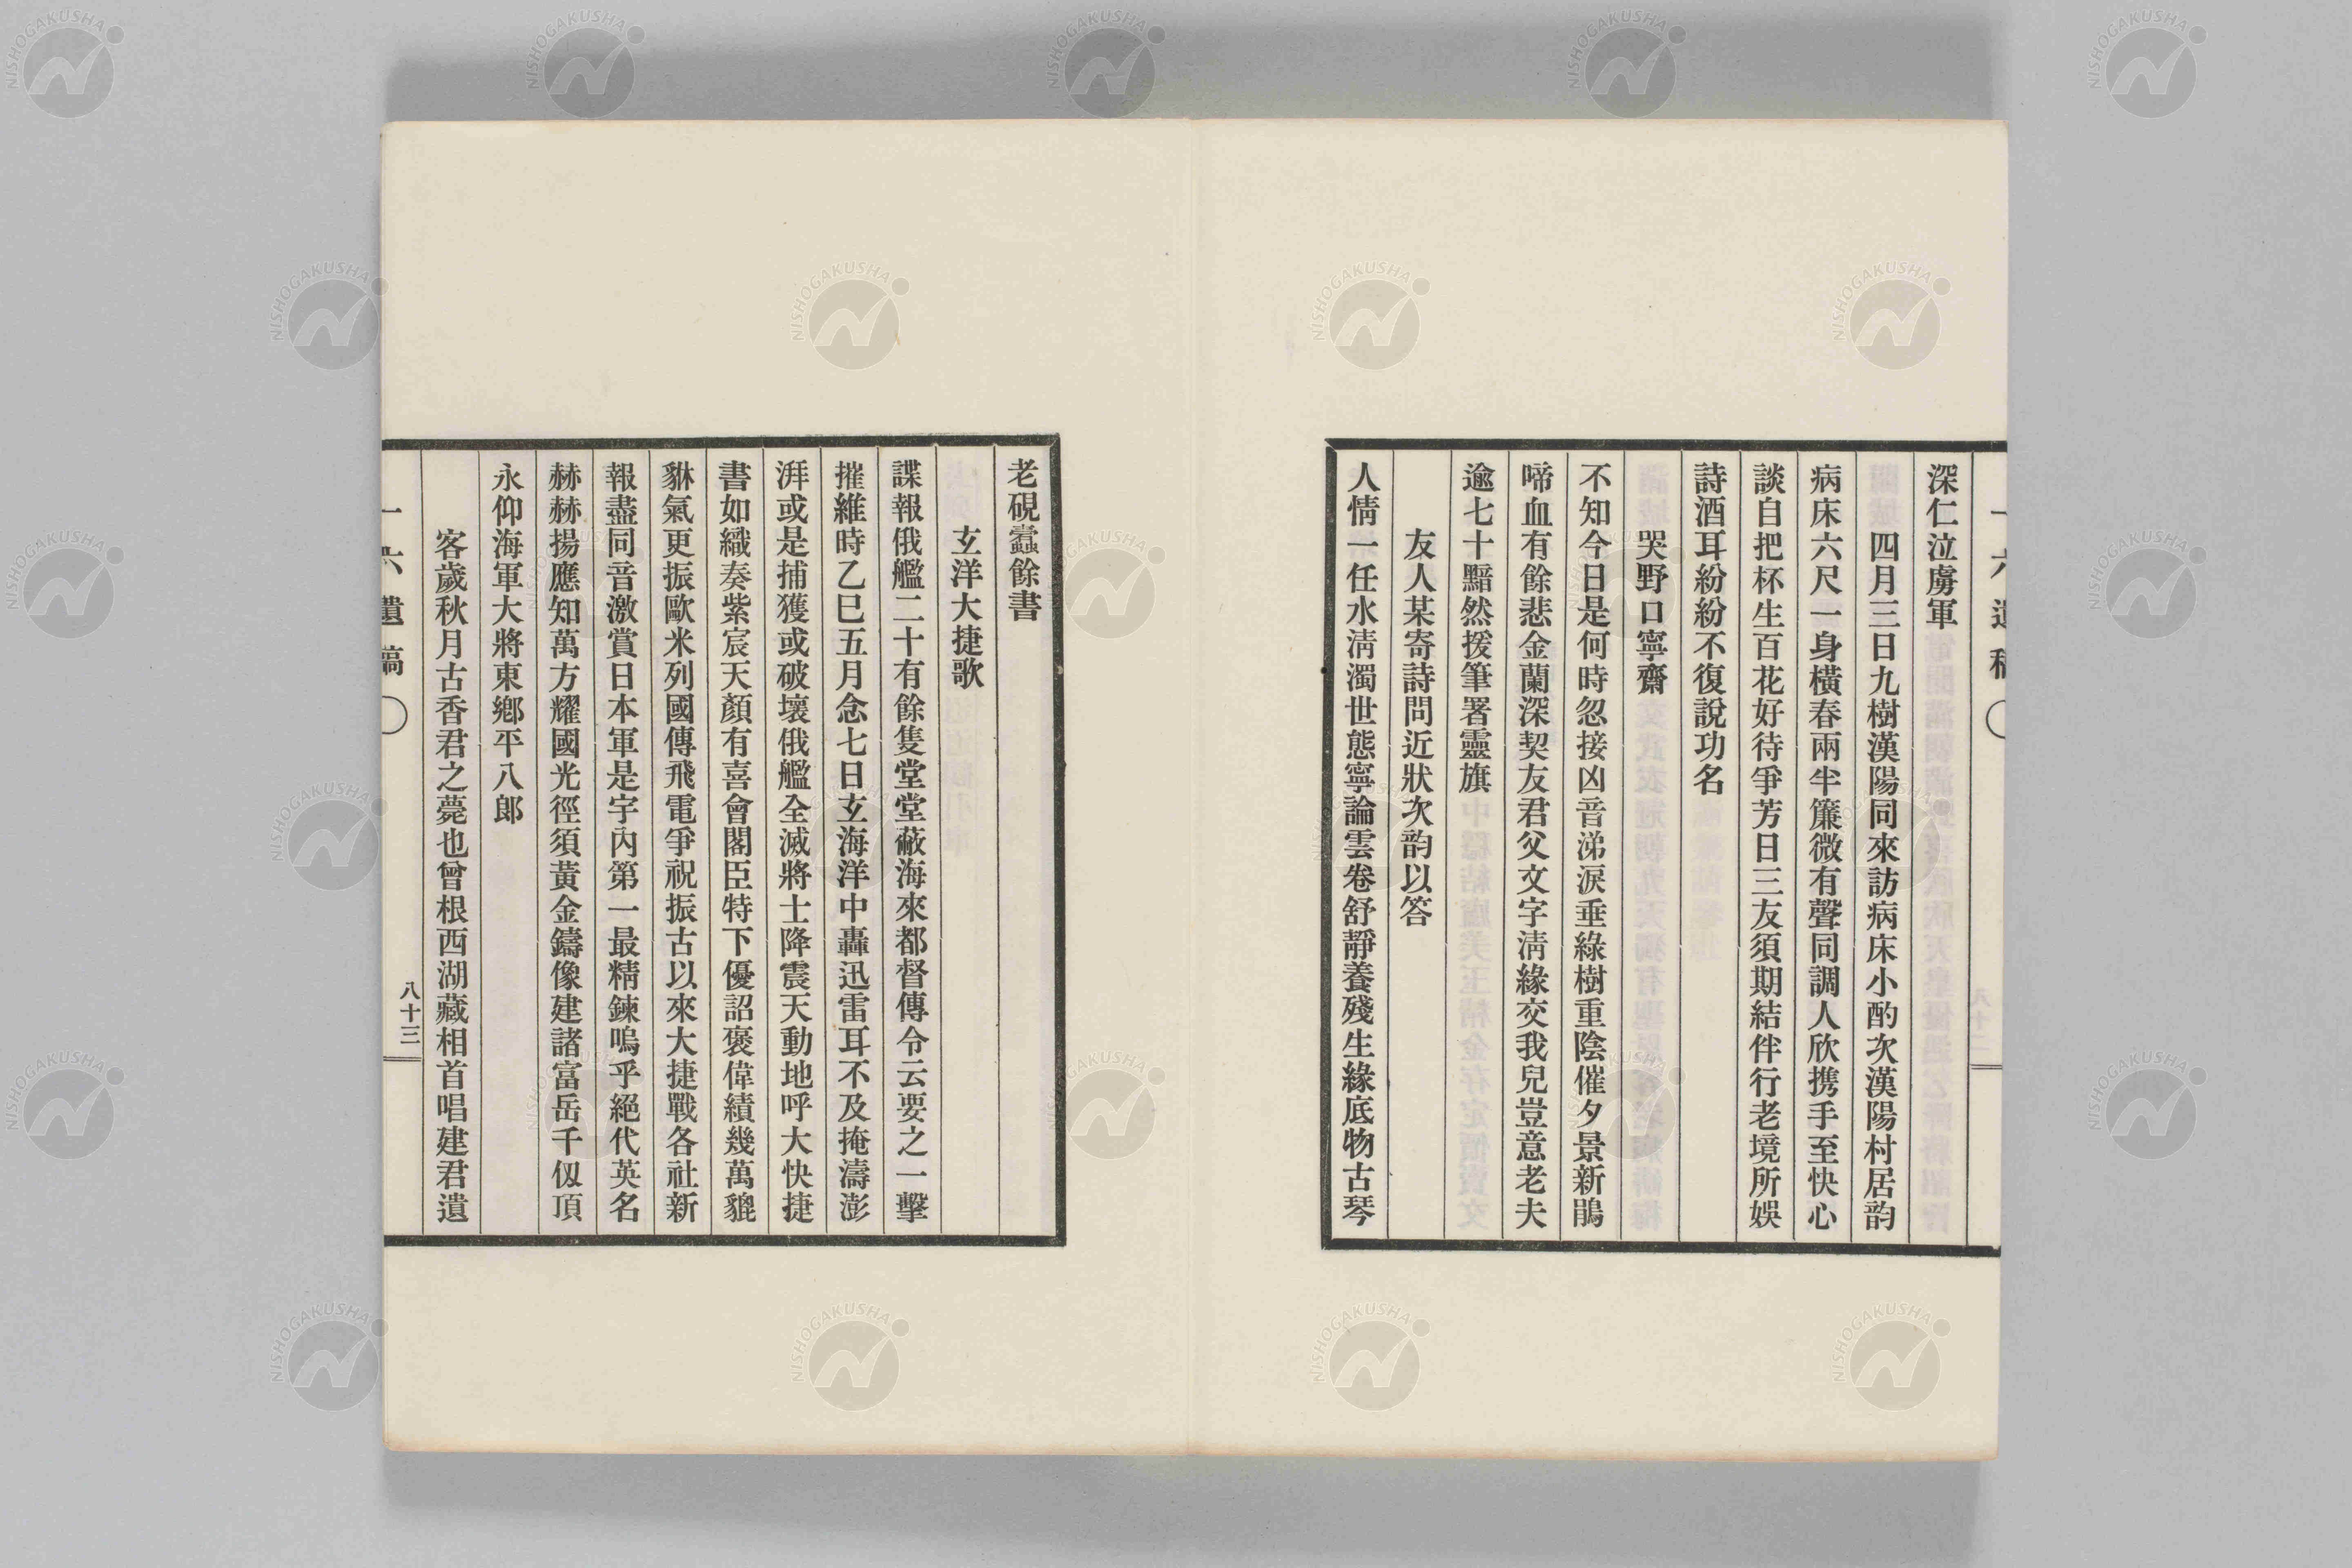 深仁泣虜軍
四月三日九樹漢陽同來訪病床小酌次漢陽村居韵
病床六尺一身橫春兩半簾微有聲同調人欣携手至快心
談自把杯生百花好待爭芳日三友須期結伴行老境所娛
詩酒耳紛紛不復説功名
哭野口寧齋
不知今日是何時忽接凶音涕涙垂綠樹重陰催夕景新鵑
啼血有餘悲金蘭深契友君父文字淸緣交我兒豈意老夫
逾七十黯然援筆署靈旗
友人某寄詩問近狀次韵以答
人情一任水淸濁世態寧論雲卷舒靜養殘生緣底物古琴
老硯蠹餘書
玄洋大捷歌
諜報俄艦二十有餘隻堂堂蔽海來都督傳令云要之一擊
摧維時乙巳五月念七日玄海洋中轟迅雷耳不及掩濤澎
湃或是捕獲或破壞俄艦全滅將士降震天動地呼大快捷
書如織奏紫宸天顏有喜會閣臣特下優詔褒偉績幾萬貔
貅氣更振歐米列國傳飛電爭祝振古以來大捷戰各社新
報盡同音激賞日本軍是宇內第一最精鍊嗚乎絕代英名
赫赫揚應知萬方耀國光徑須黃金鑄像建諸富岳千仭頂
永仰海軍大將東鄉平八郎
客歲秋月古香君之薨也曾根西湖藏相首唱建君遺
一六遺稿
八十三
NISHOGAKUSHA